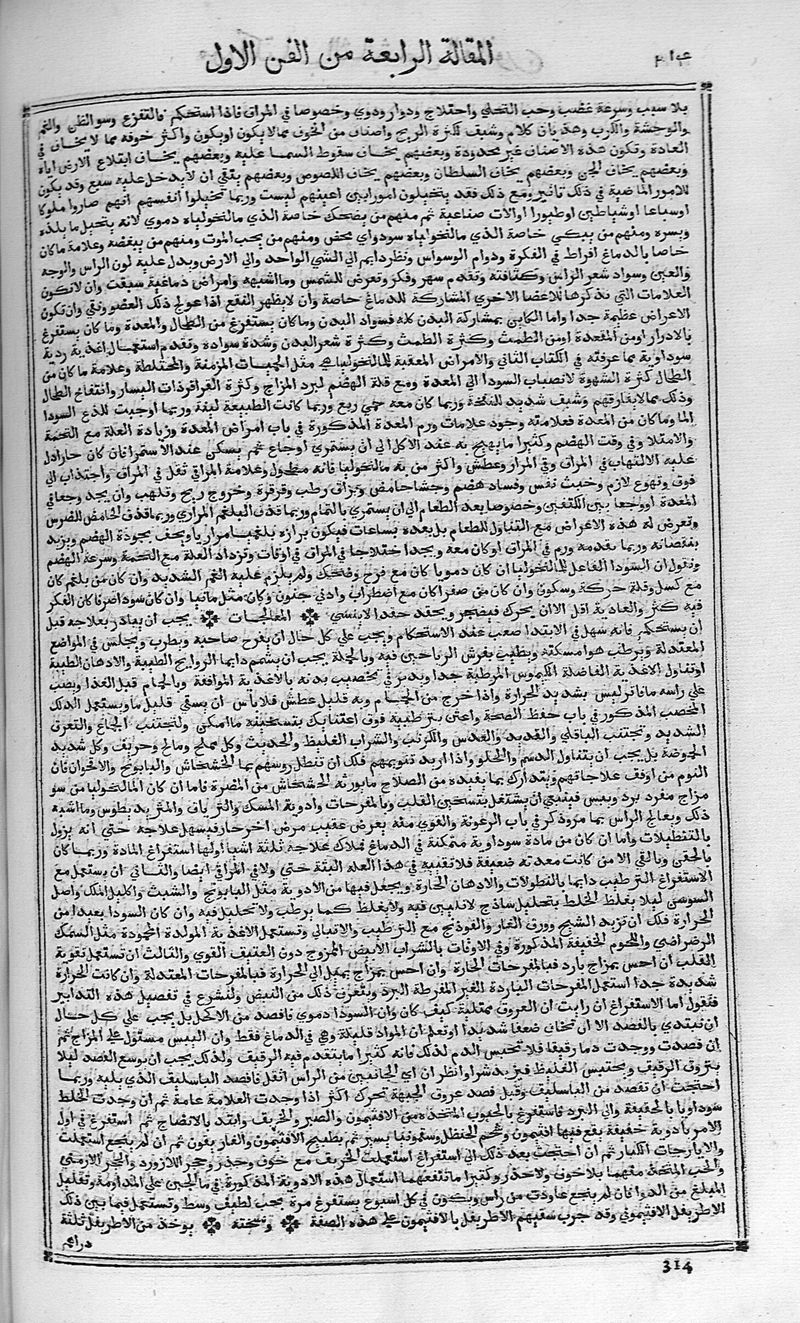 المقالة الرابعة من الفن الاول
بلا سبب وسرعة غضب وحب التخلي واختلاج ودوار ودوي وخصوصا في المراق فاذا استحكم فالتفزع وسو الظن والغم
والوحشة والكرب وهذيان كلام وشبق لكثرة الريح واصناف من الخوف مما لا يكون او يكون واكثر خوفه مما لا يخاف في
العادة وتكون هذه الاصناف غير محدودة وبعضهم يخاف سقوط السما عليه وبعضهم يخاف ابتلاع الارض اياه
وبعضهم يخاف الجن وبعضهم يخاف السلطان وبعضهم يخاف اللصوص وبعضهم يتقي ان لا يدخل عليه سبع وقد يكون
للامور الماضية في ذلك تاثير ومع ذلك فقد يتخيلون امورا بين اعينهم ليست وربما تخيلوا انفسهم انهم صاروا ملوكا
او سباعا او شياطين او طيورا او الات صناعية ثم منهم من يضحك خاصة الذي مالنخولياه دموي لانه يتخيل ما يلذه
ويسره ومنهم من يبكي خاصة الذي مالنخولياه سوداوي محض ومنهم من يحب الموت ومنهم من يبغضه وعلامة ما كان
خاصا بالدماغ افراط في الفكرة ودوام الوسواس ونظر دايم الي الشي الواحد والي الارض ويدل عليه لون الراس والوجه
والعين وسواد شعر الراس وكثافته وتقدم سهر وفكر وتعرض للشمس وما اشبهه وامراض دماغية سبقت وان لا تكون
العلامات التي نذكرها للاعضا الاخري المشاركة للدماغ خاصة وان لا يظهر النفع اذا عولج ذلك العضو ونقي وان تكون
الاعراض عظيمة جدا واما الكاين بمشاركة البدن كله فسواد البدن وما كان يستفرغ من الطحال والمعدة وما كان يستفرغ
بالادرار او من المقعدة او من الطمث وكثرة الطمث وكثرة شعر البدن وشدة سواده وتقدم استعمال اغذية ردية
سوداوية مما عرفته في الكتاب الثاني والامراض المعقبة للمالنخوليا هي مثل الحميات المزمنة والمختلطة وعلامة ما كان من
الطحال كثرة الشهوة لانصباب السودا الي المعدة ومع قلة الهضم لبرد المزاج وكثرة القراقر ذات اليسار وانتفاخ الطحال
وذلك مما لا يفارقهم وشبق شديد للنفخة وربما كان معه حمي ربع وربما كانت الطبيعة لينة وربما اوجبت للذع السودا
الما وما كان من المعدة فعلامته وجود علامات ورم المعدة المذكورة في باب امراض المعدة وزيادة العلة مع التخمة
والامتلا وفي وقت الهضم وكثيرا ما يهيج به عند الاكل الي ان يستمري اوجاع ثم يسكن عند الاستمرا فان كان حارا دل
عليه الالتهاب في المراق وفي المرار وعطش واكثر من به مالنخوليا فانه مطحول وعلامة المراقي ثقل في المراق واجتذاب الي
فوق وتهوع لازم وخبث نفس وفساد هضم وجشا حامض وبزاق رطب وقرقرة وخروج ريح وتلهب وان يجد وجعا في
المعدة او وجعا بين الكتفين وخصوصا بعد الطعام الي ان يستمري بالتمام وربما قذف البلغم المراري وربما قذف الحامض المضرس
وتعرض له هذه الاعراض مع التناول للطعام بل بعده بساعات فيكون برازه بلغميا مراريا ويخف بجودة الهضم ويزيد
بنقصانه وربما تقدمه ورم في المراق او كان معه ويجد اختلاجا في المراق في اوقات وتزداد العلة مع التخمة وسرعة الهضم
ونقول ان السودا الفاعل للمالنخوليا ان كان دمويا كان مع فرح وضحك ولم يلزم عليه الغم الشديد وان كان من بلغم كان
مع كسل وقلة حركة وسكون وان كان من صفرا كان مع اضطراب وادني جنون وكان مثل مانيا وان كان سودا صرفا كان الفكر
فيه كثر والعادية اقل الا ان يحرك فيضجر ويحقد حقدا لا ينسي ❊ المعالجات ❊ يجب ان يبادر بعلاجه قبل
ان يستحكم فانه سهل في الابتدا صعب عند الاستحكام ويجب علي كل حال ان يفرح صاحبه ويطرب ويجلس في المواضع
المعتدلة ويرطب هوا مسكنه ويطيب بفرش الرياحين فيه وبالجملة يجب ان يشمم دايما الروايح الطيبة والادهان الطيبة
وتناول الاغذية الفاضلة الكيموس المرطبة جدا ويدبر في تخصيب بدنه بالاغذية الموافقة وبالحمام قبل الغذا ويصب
علي راسه ما فاتر ليس بشديد الحرارة واذا خرج من الحمام وبه قليل عطش فلا باس ان يسقي قليل ما ويستعمل الدلك
المخصب المذكور في باب حفظ الصحة واعتن بترطيبه فوق اعتنايك بتسخينه ما امكن وليجتنب الجماع والتعرق
الشديد وتجتنب الباقلي والقديد والعدس والكرنب والشراب الغليظ والحديث وكل مملح ومالح وحريف وكل شديد
الحموضة بل يجب ان يتناول الدسم والحلو واذا اريد تنويمهم فلك ان تنطل روسهم بما الخشخاش والبابونج والاقحوان فان
النوم من اوفق علاجاتهم ويتدارك بما يفيده من الصلاح ما يورثه الخشخاش من المضرة فاما ان كان المالنخوليا من سو
مزاج مفرد برد ويبس فينبغي ان يشتغل بتسخين القلب وبالمفرحات وادوية المسك والترياق والمثرييطوس وما اشبه
ذلك ويعالج الراس بما مر وذكر في باب الرعونة والقوي منه يعرض عقيب مرض اخر حار فيسهل علاجه حتي انه يزول
بالتنطيلات واما ان كان من مادة سوداوية متمكنة في الدماغ فملاك علاجه ثلثة اشيا اولها استفراغ المادة وربما كان
بالحقن وبالقي الا من كانت معدته ضعيفة فلا تقييه في هذا العلة البتة حتي ولا في المراقي ايضا والثاني ان يستعمل مع
الاستفراغ الترطيب دايما بالنطولات والادهان الحارة ويجعل فيها من الادوية مثل البابونج والشبث واكليل الملك واصل
السوسن ليلا يغلظ الخلط بتحليل ساذج لا تليين فيه ولا يغلظ كما يرطب ولا تحليل فيه وان كان السودا بعيدا من
الحرارة فلك ان تزيد الشيح وورق الغار والفوذنج مع الترطيب ولا تبالي وتستعمل الاغذية المولدة المحمودة مثل السمك
الرضراضي واللحوم الخفيفة المذكورة وفي الاوقات بالشراب الابيض الممزوج دون العتيق القوي والثالث ان تستعمل تقوية
القلب ان احس بمزاج بارد فبالمفرحات الحارة وان احس بمزاج يميل الي الحرارة فبالمفرحات المعتدلة وان كانت الحرارة
شديدة جدا استعمل المفرحات الباردة الغير المفرطة البرد ويتعرف ذلك من النبض ولنشرع في تفصيل هذه التدابير
فنقول اما الاستفراغ ان رايت ان العروق ممتلية كيف كان وان السودا دموي فافصد من الاكحل بل يجب علي كل حال
ان تبتدي بالفصد الا ان تخاف ضعفا شديدا او تعلم ان المواد قليلة وهي في الدماغ فقط وان اليبس مستول علي المزاج ثم
ان فصدت ووجدت دما رقيقا فلا تحبس الدم لذلك فانه كثيرا ما يتقدم فيه الرقيق ولذلك يجب ان يوسع الفصد ليلا
يتروق الرقيق ويحتبس الغليظ فيزيد شرا وانظر ان اي الجانبين من الراس اثقل فافصد الباسليق الذي يليه وربما
احتجت ان تفصد من الباسليقين وقبل فصد عروق الجبهة تحرك اكثر اذا وجدت العلامة عامة ثم ان وجدت الخلط
سوداويا بالحقيقة والي البرد فاستفرغ بالحبوب المتخذة من الافتيمون والصبر والخربق وابتد بالانضاج ثم استفرغ في اول
الامر بادوية خفيفة يقع فيها افتيمون وشحم الحنظل وسقمونيا يسير ثم بطبيخ الافتيمون والغاريقون ثم ان لم ينجع استعملت
والايارجات الكبار ثم ان احتجت بعد ذلك الي استفراغ استعملت الخربق مع خوف وحذر وحجر اللازورد والحجر الارمني
والحب المتخذ منهما بلا خوف ولا حذر وكثيرا ما ينفعهما استعمال هذه الادوية المذكورة في ما الجبن علي المداومة وتقليل
المبلغ من الدوا فان لم ينجع عاودت من راس ويكون في كل اسبوع يستفرغ مرة بحب لطيف وسط وتستعمل فيما بين ذلك
الاطريفل الافتيموني وقد جرب سقيهم الاطريفل بالافتيمون علي هذه الصفة ❊ ونسخته ❊ يوخذ من الاطريفل ثلثة
دراهم
314